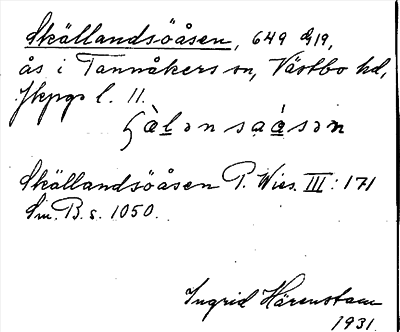 Skällandsöåsen, 649 D 19,
ås i Tannåkers sn, Västbo hd,
Jkpgs l. 11.
Skällandsöåsen P. Wies. III: 171
Sm. B. s. 1050.
Ingrid Härenstam
1931.